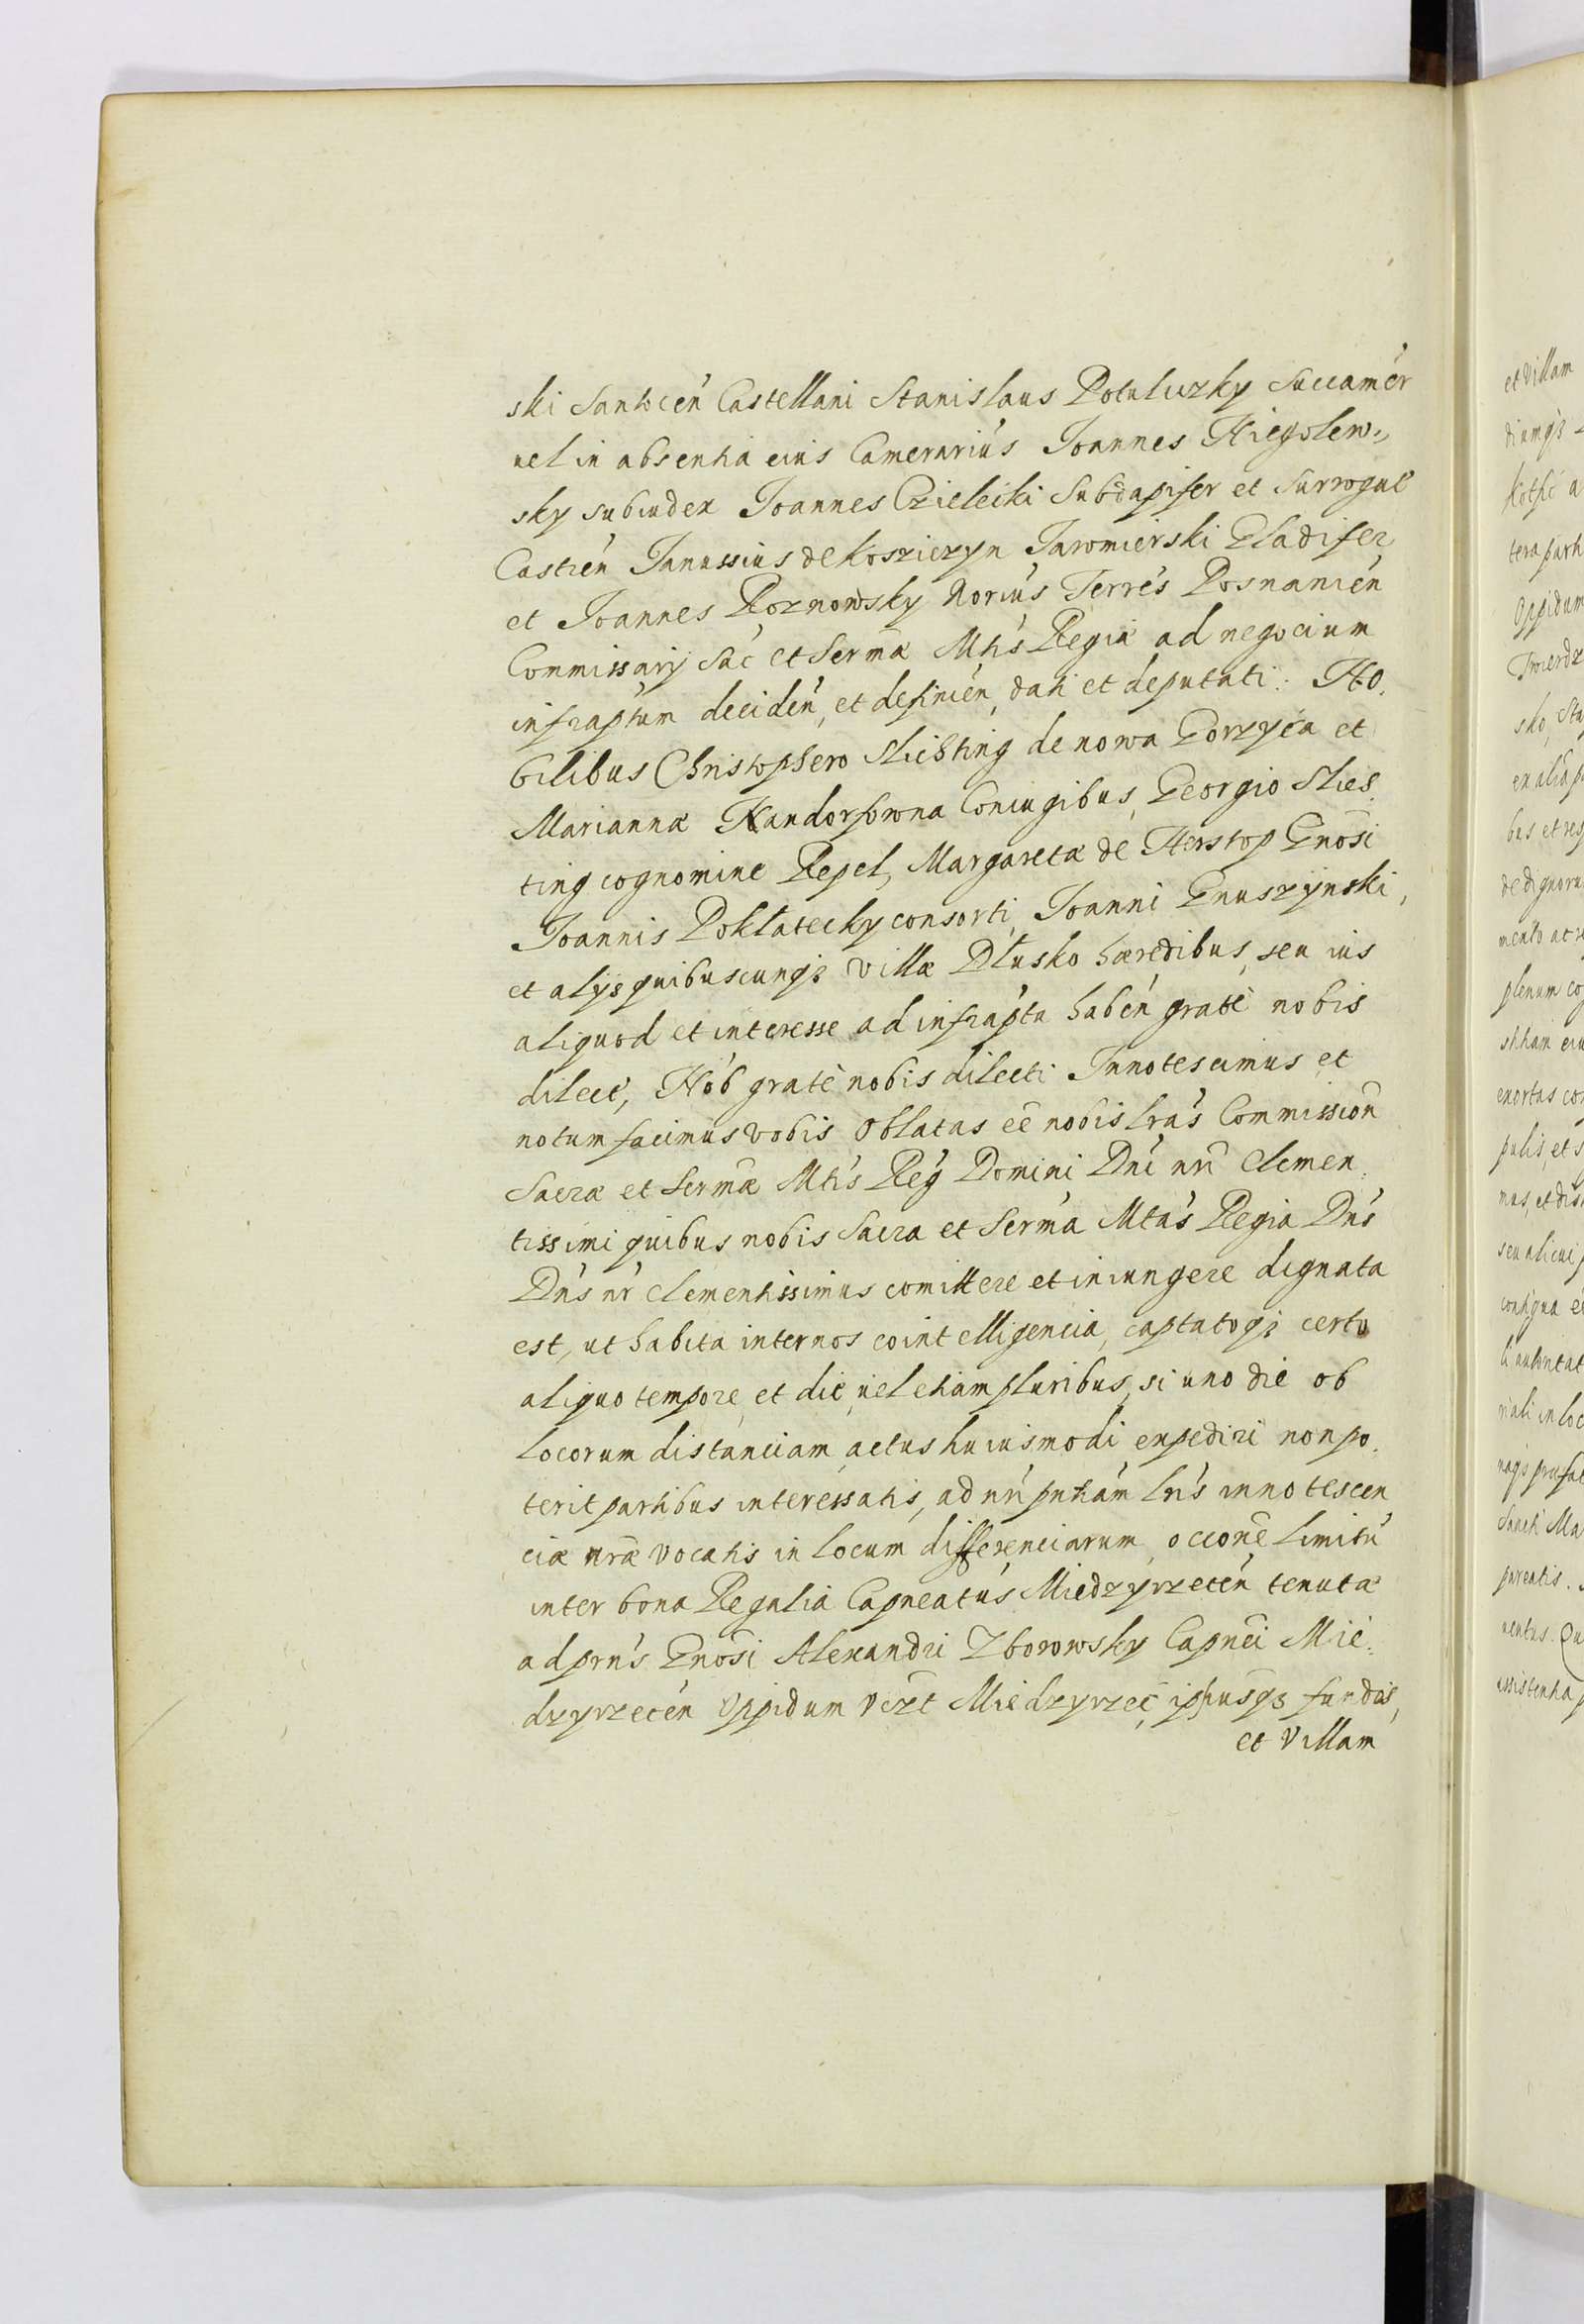 ski Santocen̄ Castellani Stanislaus Potuliczky Succamer̄
uel in absentia eius Camerarius Ioannes Niegolew„
sky subiudex Ioannes Czielecki Subdapifer et Surrogat̄
Castren̄ Ianussius de Kosziczyn Jaromierski Gladifer
et Ioannes Roznowsky Norius Terres̄ Posnanien̄
Commissarij Sac̄ et Serm̄æ Mtis̄ Regiæ ad negocium
infrap̄tum deciden̄, et definien̄, dati et deputati. No.
bilibus Christophero Slichting de nowa Gorzyca et
Marianna Nandorfowna Coniugibus, Georgio Slies.
ting cognomine Repel, Margaretæ de Herstop Gnōsi
Joannis Pokłatecky consorti, Ioanni Gnuszynski,
et alijs quibuscunqȝ villæ Dłusko hæredibus, seu ius
aliquod et interesse ad infrap̄ta haben̄ gratē nobis
dilect̄, Nob̄ gratē nobis dilecti Innotescimus et
notum facimus vobis Oblatas eē nobis lrās Commission̄
Sacræ et Serm̄æ Mtis̄ Reḡ Domini Dn̄i nr̄i Clemen.
tissimi quibus nobis Sacra et Serm̄a Mtas̄ Regia Dn̄s
Dn̄s nr̄ clementissimus comittere et iniungere dignata
est, ut habita internos cointelligencia, captatoqȝ certo
aliquo tempore, et die, uel etiam pluribus, si uno die ob
locorum distanciam actus huiusmodi expediri non po.
terit partibus interessatis, ad nr̄i pn̄tiam lris̄ innotescen
ciæ nrāe vocatis in locum differenciarum, occione limitū
inter bona Regalia Capneatus̄ Miedzyrzecen̄ tenutæ
ad prn̄s Gnōsi Alexandri Zborowsky Capnēi Mie.
dzyrzecen̄ Oppidum vczt Miedzyrzec̄, ipsiusqȝ fundos,
et Villam
et Villam
diumqȝ
tera parti
Oppidum
Twierdz
sko, Sta
bus et reg
plenum co
exortas con
pulis, et s
seu alicui p
contigua
Sancti Ma
uentus. Qu
assistentia p